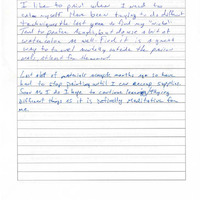 I like to paint when I need to
calm myself. Have been trying to do different
techniques the last year to find my "niche".
Tend to prefer acrylic, but do use a bit of
watercolor as well. Find it is a great
way to travel mentally outside the prison
walls, at least for the moment.
Lost a lot of materials couple months ago so have
had to stop painting until I can revamp supplies.
Soon as I do I hope to continue learning/trying
different things as it is actually meditative for
me.